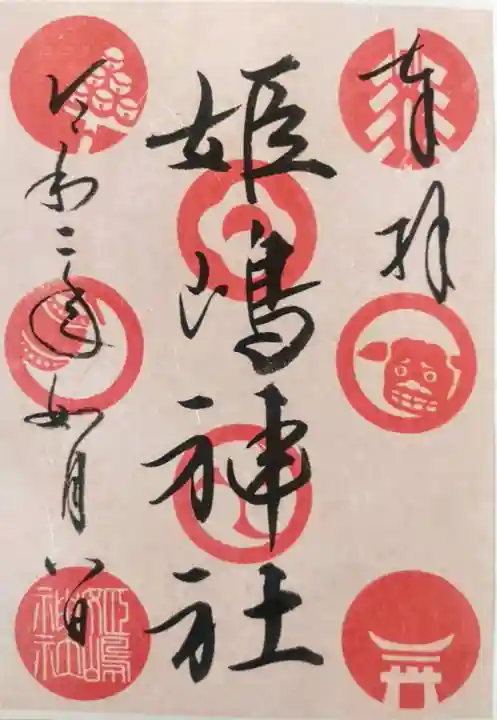 奉拝
姫嶋神社
令和二年如月八日
姫嶋神社